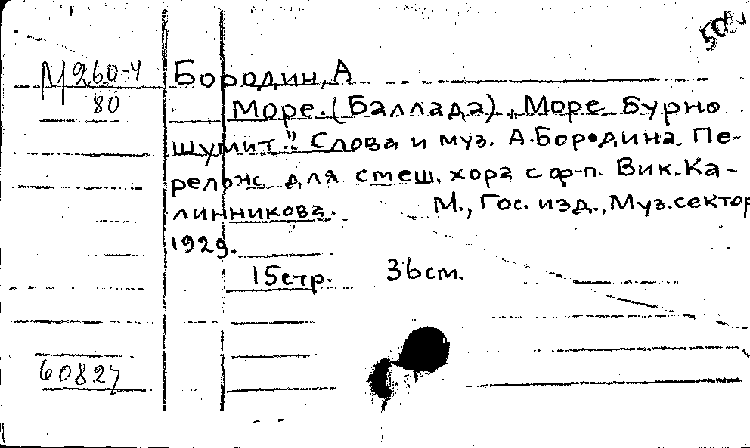 М260-4
80
Бородин, А
Море. (Баллада). „Море бурно
шумит." Слова и муз. А. Бородина. Пе-
релож. для смеш. хора с ф-п. Вик. Ка-
линникова. М., Гос. изд., Муз. сектор
1929.
15 стр. 36 см.
60827